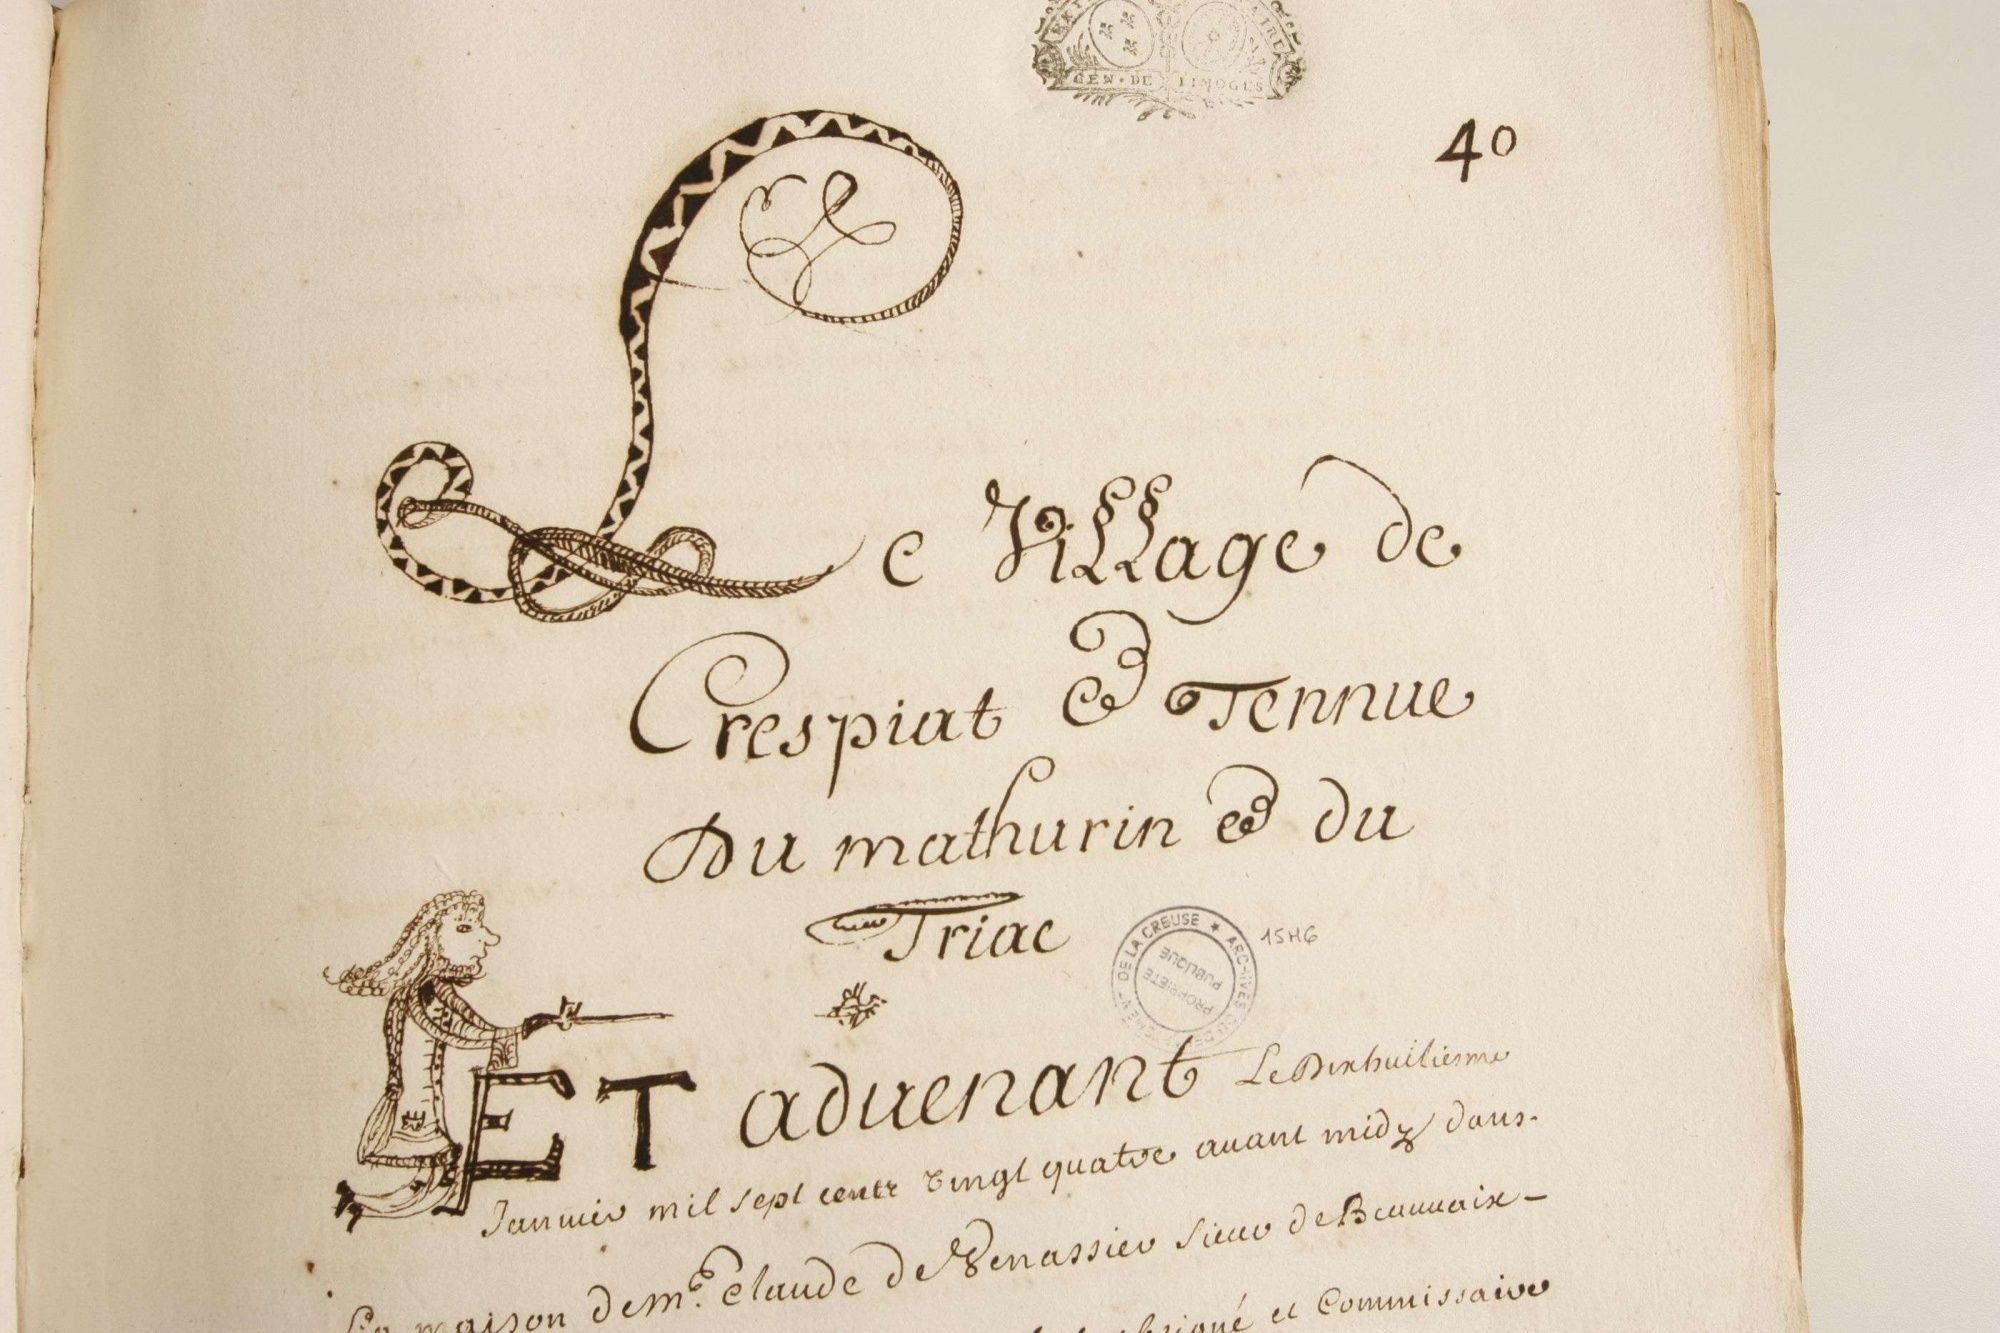 GEN · DE LIMOGES
40
Le Village de
Crespiat & Tennue
Du mathurin & du
Triac
DE LA CREUSE ★ ARCHIVES DU
PROPRIÉTÉ PUBLIQUE
15H6
ET aduenant Le Dixhuitiesme
Januier mil sept centz vingt quatre auant midy dans
La maison de me. Claude de Venassier Sieur de Beauuaix
et Commissaire